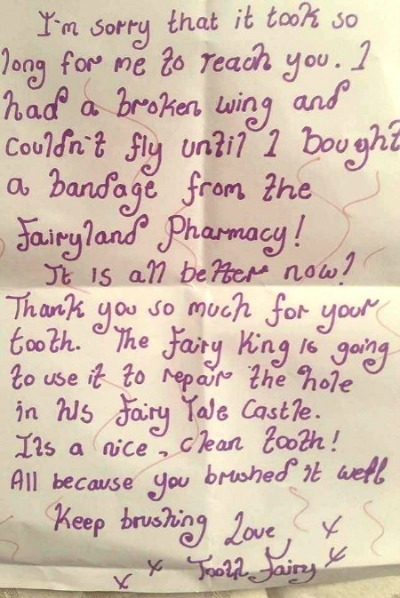 I'm sorry that it took so
long for me to reach you. I
had a broken wing and
couldn't fly until I bought
a bandage from the
Fairyland Pharmacy!
It is all better now!
Thank you so much for your
tooth. The Fairy King is going
to use it to repair the hole
in his Fairy Tale Castle.
Its a nice, clean tooth!
All because you brushed it well
Keep brushing Love, x
x x Tooth Fairy x